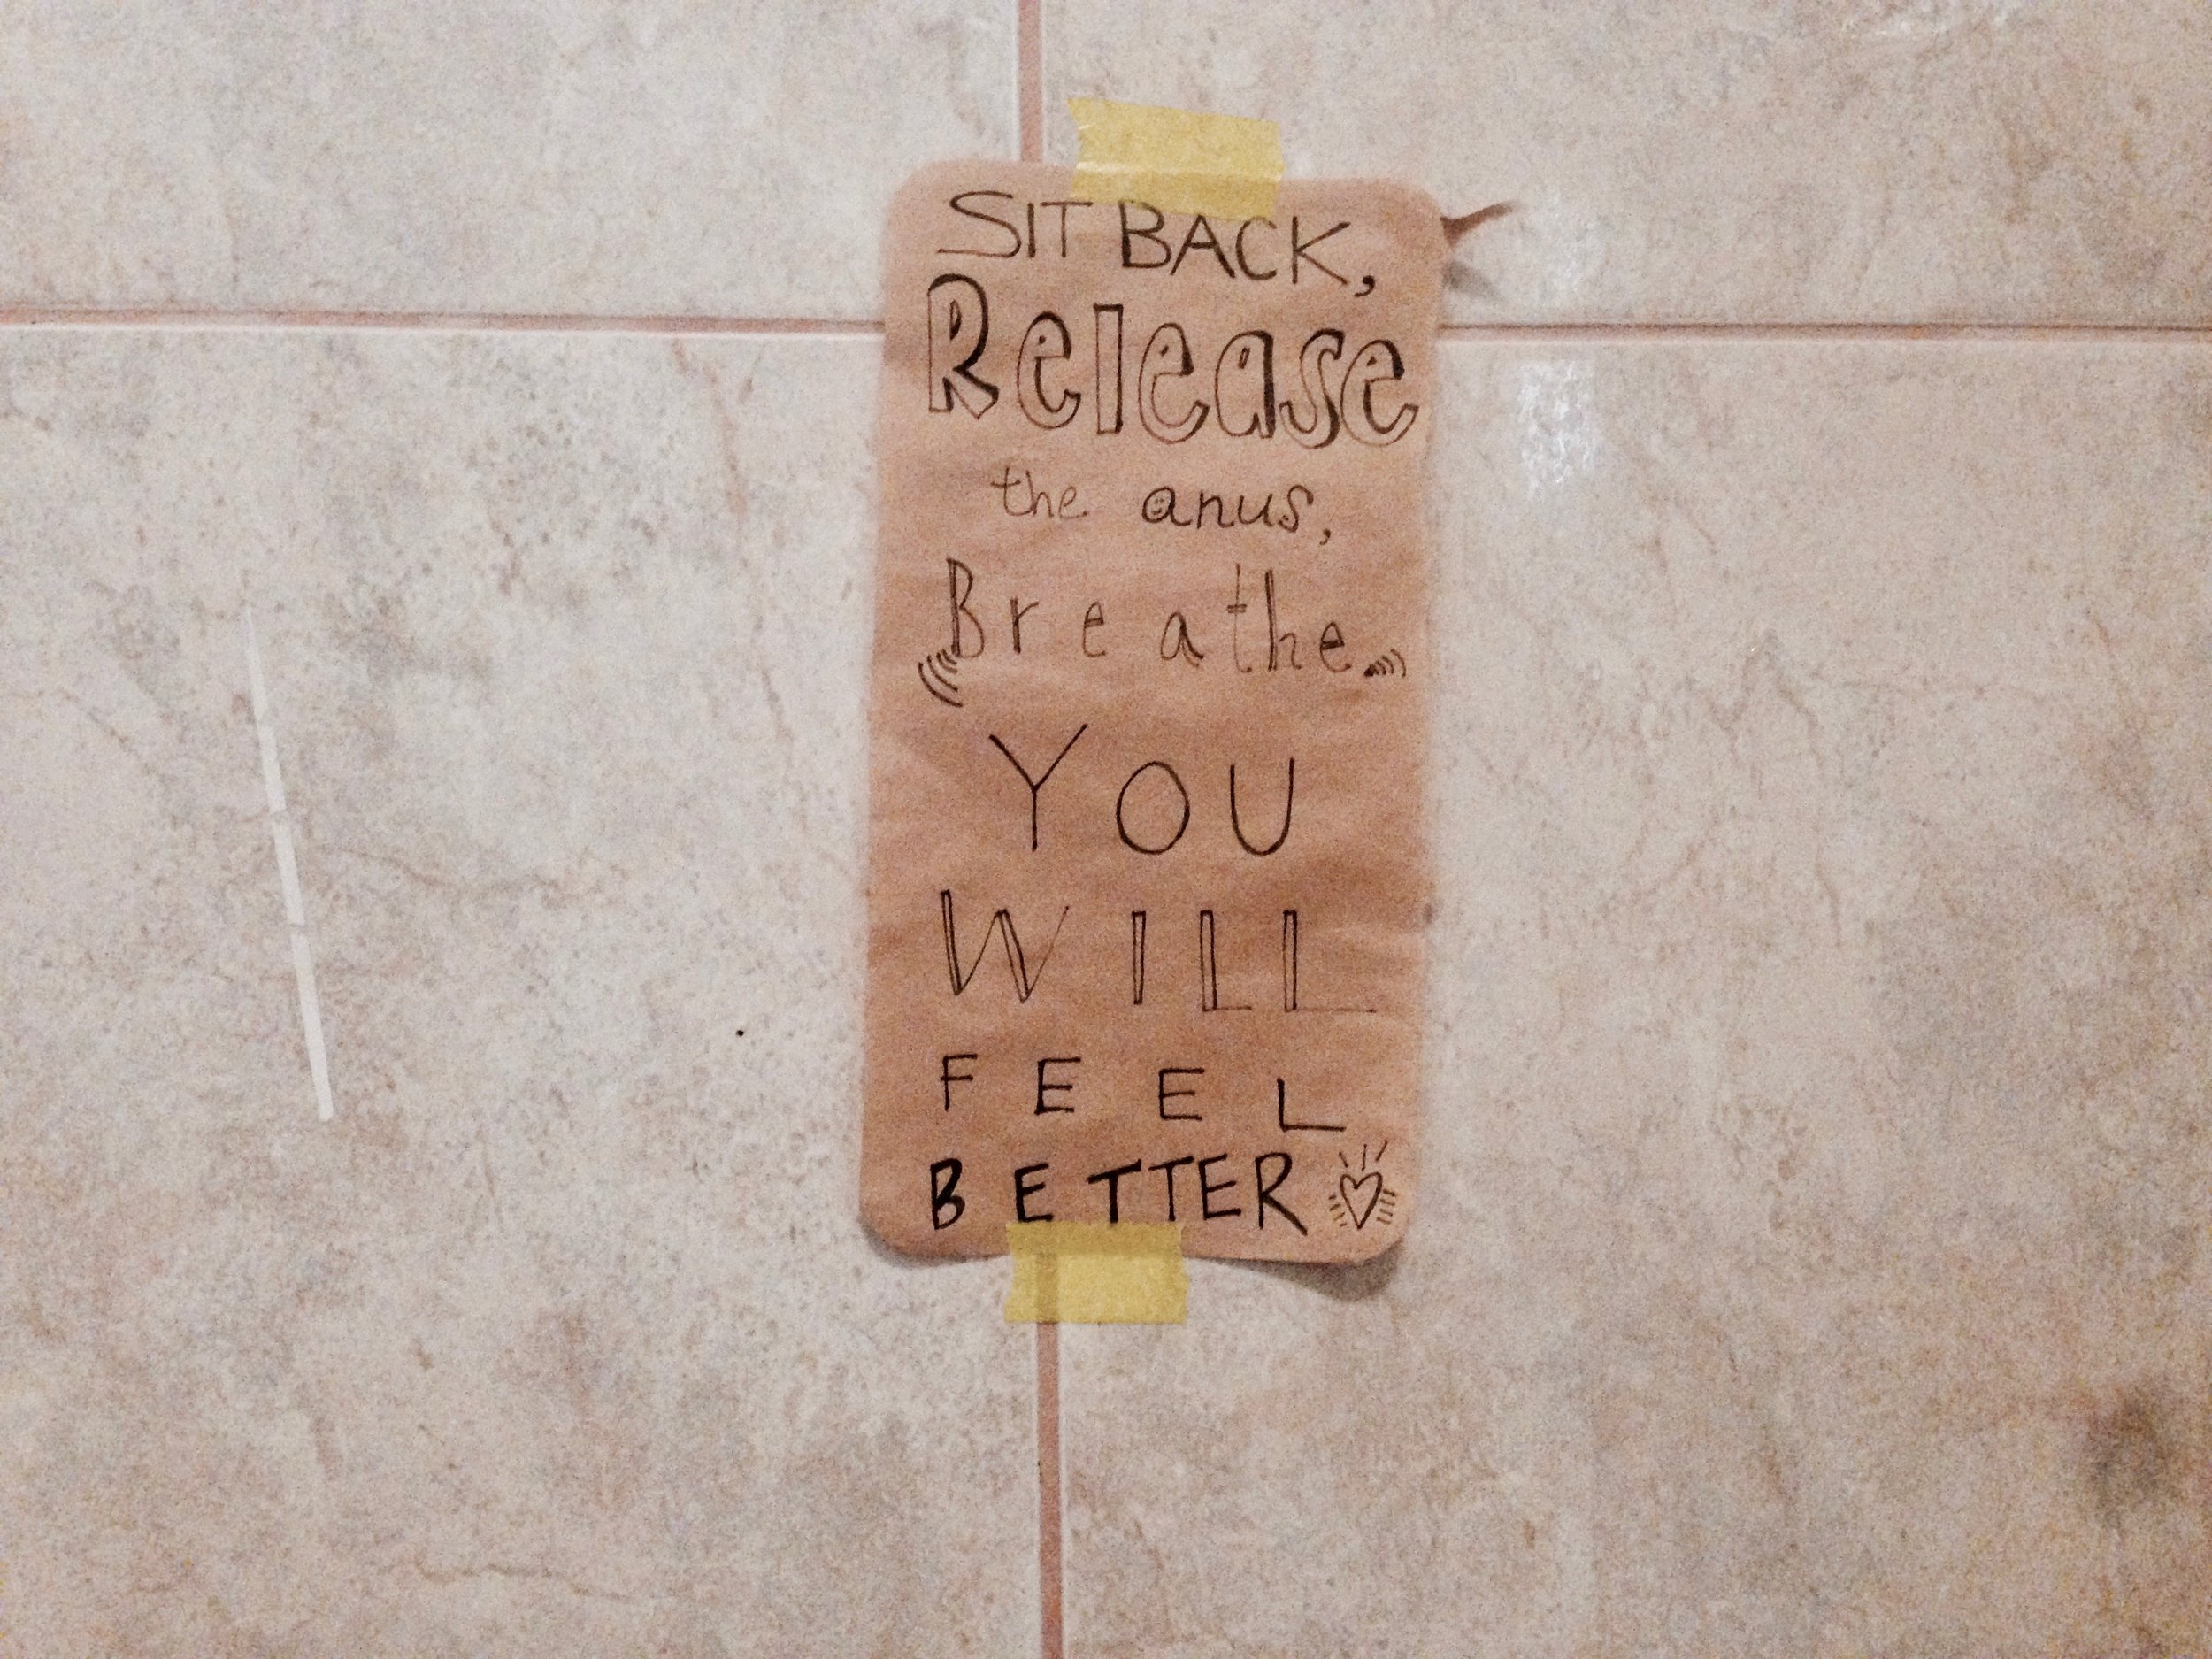 SIT BACK,
Release
the anus,
Breathe
YOU
WILL
FEEL
BETTER